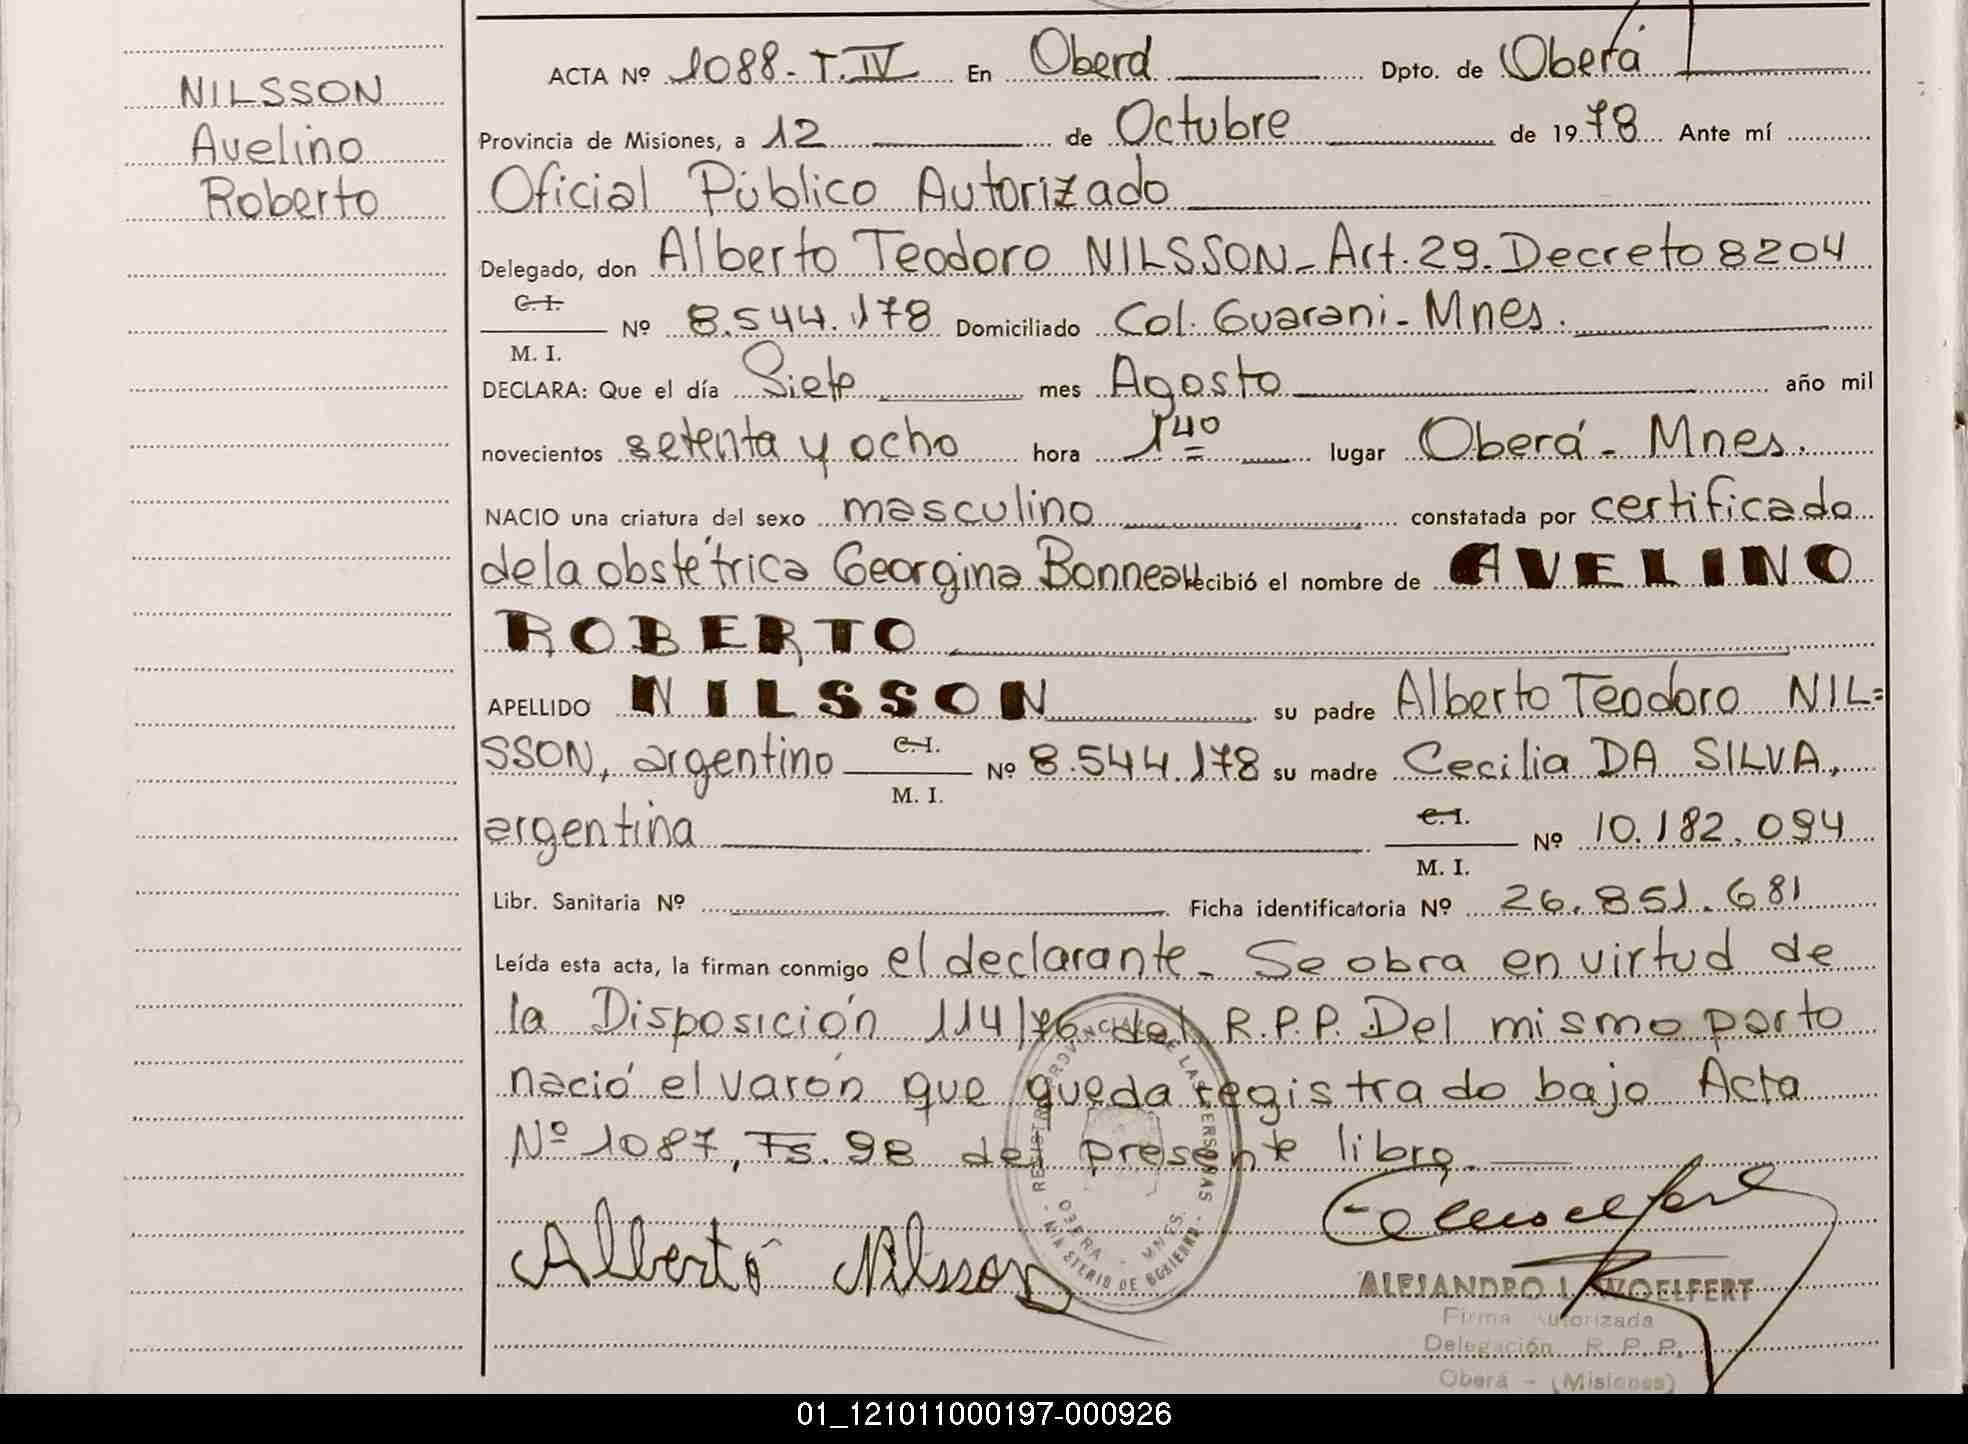 NILSSON
Avelino
Roberto
ACTA Nº 1088-T.IV En Oberá Dpto. de Oberá
Provincia de Misiones, a 12 de Octubre de 1978 Ante mí
Oficial Público Autorizado
Delegado, don Alberto Teodoro NILSSON- Art. 29. Decreto 8204
C. I.
Nº 8.544.178 Domiciliado Col. Guarani- Mnes.
M. I.
DECLARA: Que el día Siete mes Agosto año mil
novecientos setenta y ocho hora 1 40 lugar Oberá- Mnes.
NACIO una criatura del sexo masculino constatada por certificado
de la obstétrica Georgina Bonneau recibió el nombre de AVELINO
ROBERTO
APELLIDO NILSSON su padre Alberto Teodoro NIL=
SSON, argentino C. I. Nº 8.544.178 su madre Cecilia DA SILVA,
M. I.
argentina C. I. Nº 10.182.094
M. I.
Libr. Sanitaria Nº Ficha identificatoria Nº 26.851.681
Leída esta acta, la firman conmigo el declarante- Se obra en virtud de
la Disposición 114/76 del R.P.P. Del mismo parto
nació el varón que queda registrado bajo Acta
Nº 1087, Fs. 98 del presente libro.
REGISTRO PROVINCIAL DE LAS PERSONAS
OBERA - MNES.
MINISTERIO DE GOBIERNO
Alberto Nilsson
ALEJANDRO L. WOELFERT
Firma Autorizada
Delegación R. P. P.
Oberá - (Misiones)
01_121011000197-000926